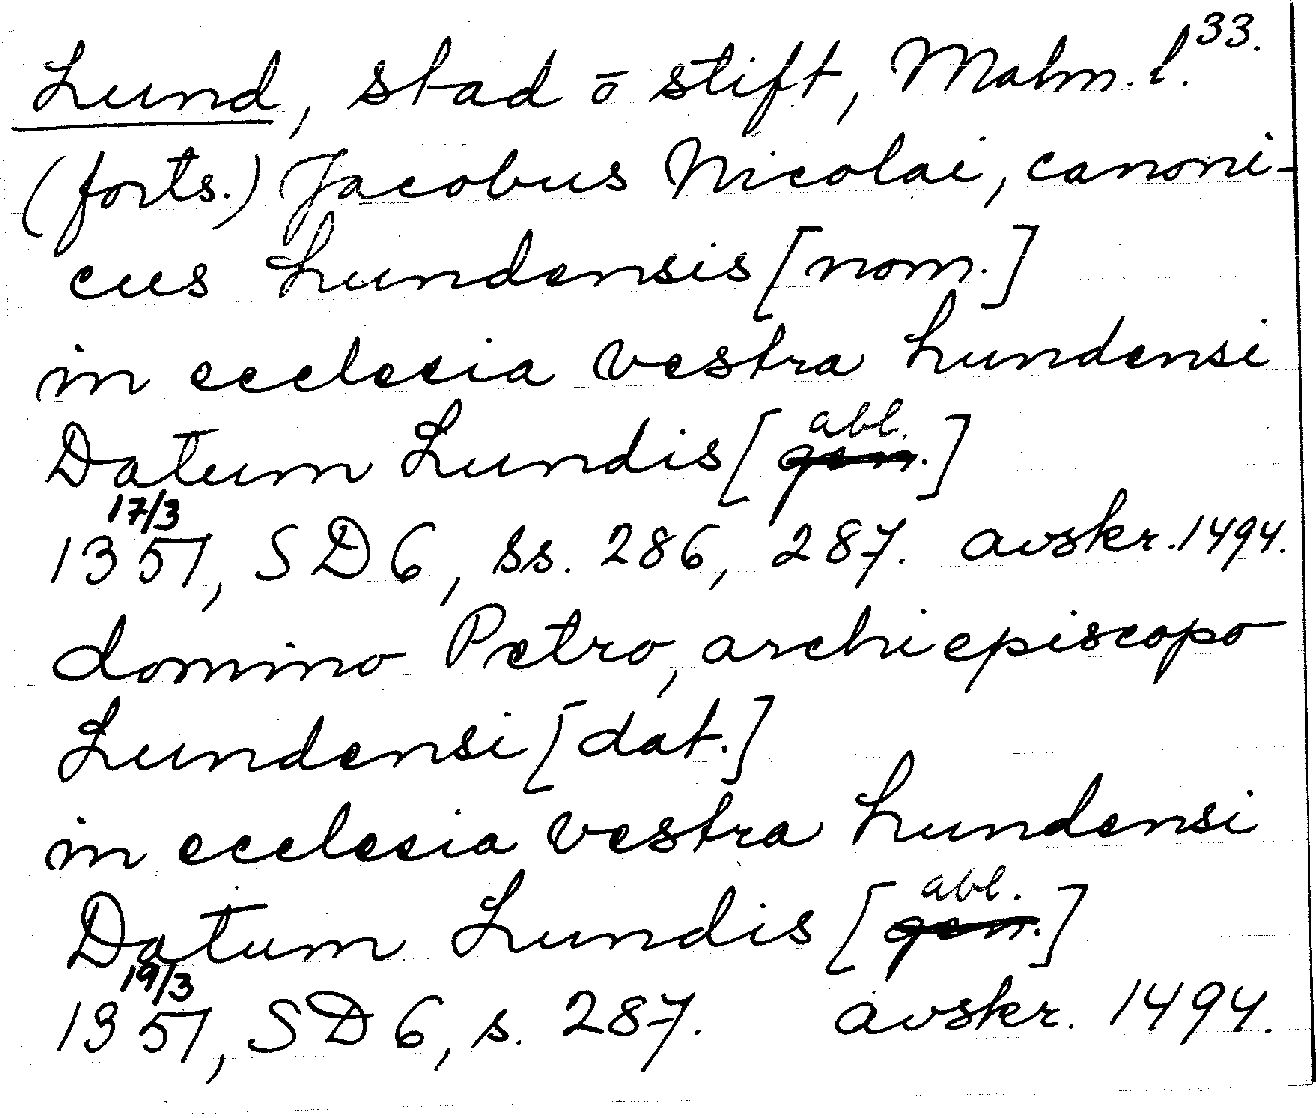 33.
Lund, stad o stift, Malm. l.
(forts.) Jacobus Nicolai, canoni-
cus Lundensis [nom.]
in ecclesia vestra Lundensi
Datum Lundis [gen. abl.]
17/3
1351, SD 6, ss. 286, 287. avskr. 1494.
domino Petro, archiepiscopo
Lundensi [dat.]
in ecclesia vestra Lundensi
Datum Lundis [gen. abl.]
19/3
1351, SD 6, s. 287. avskr. 1494.